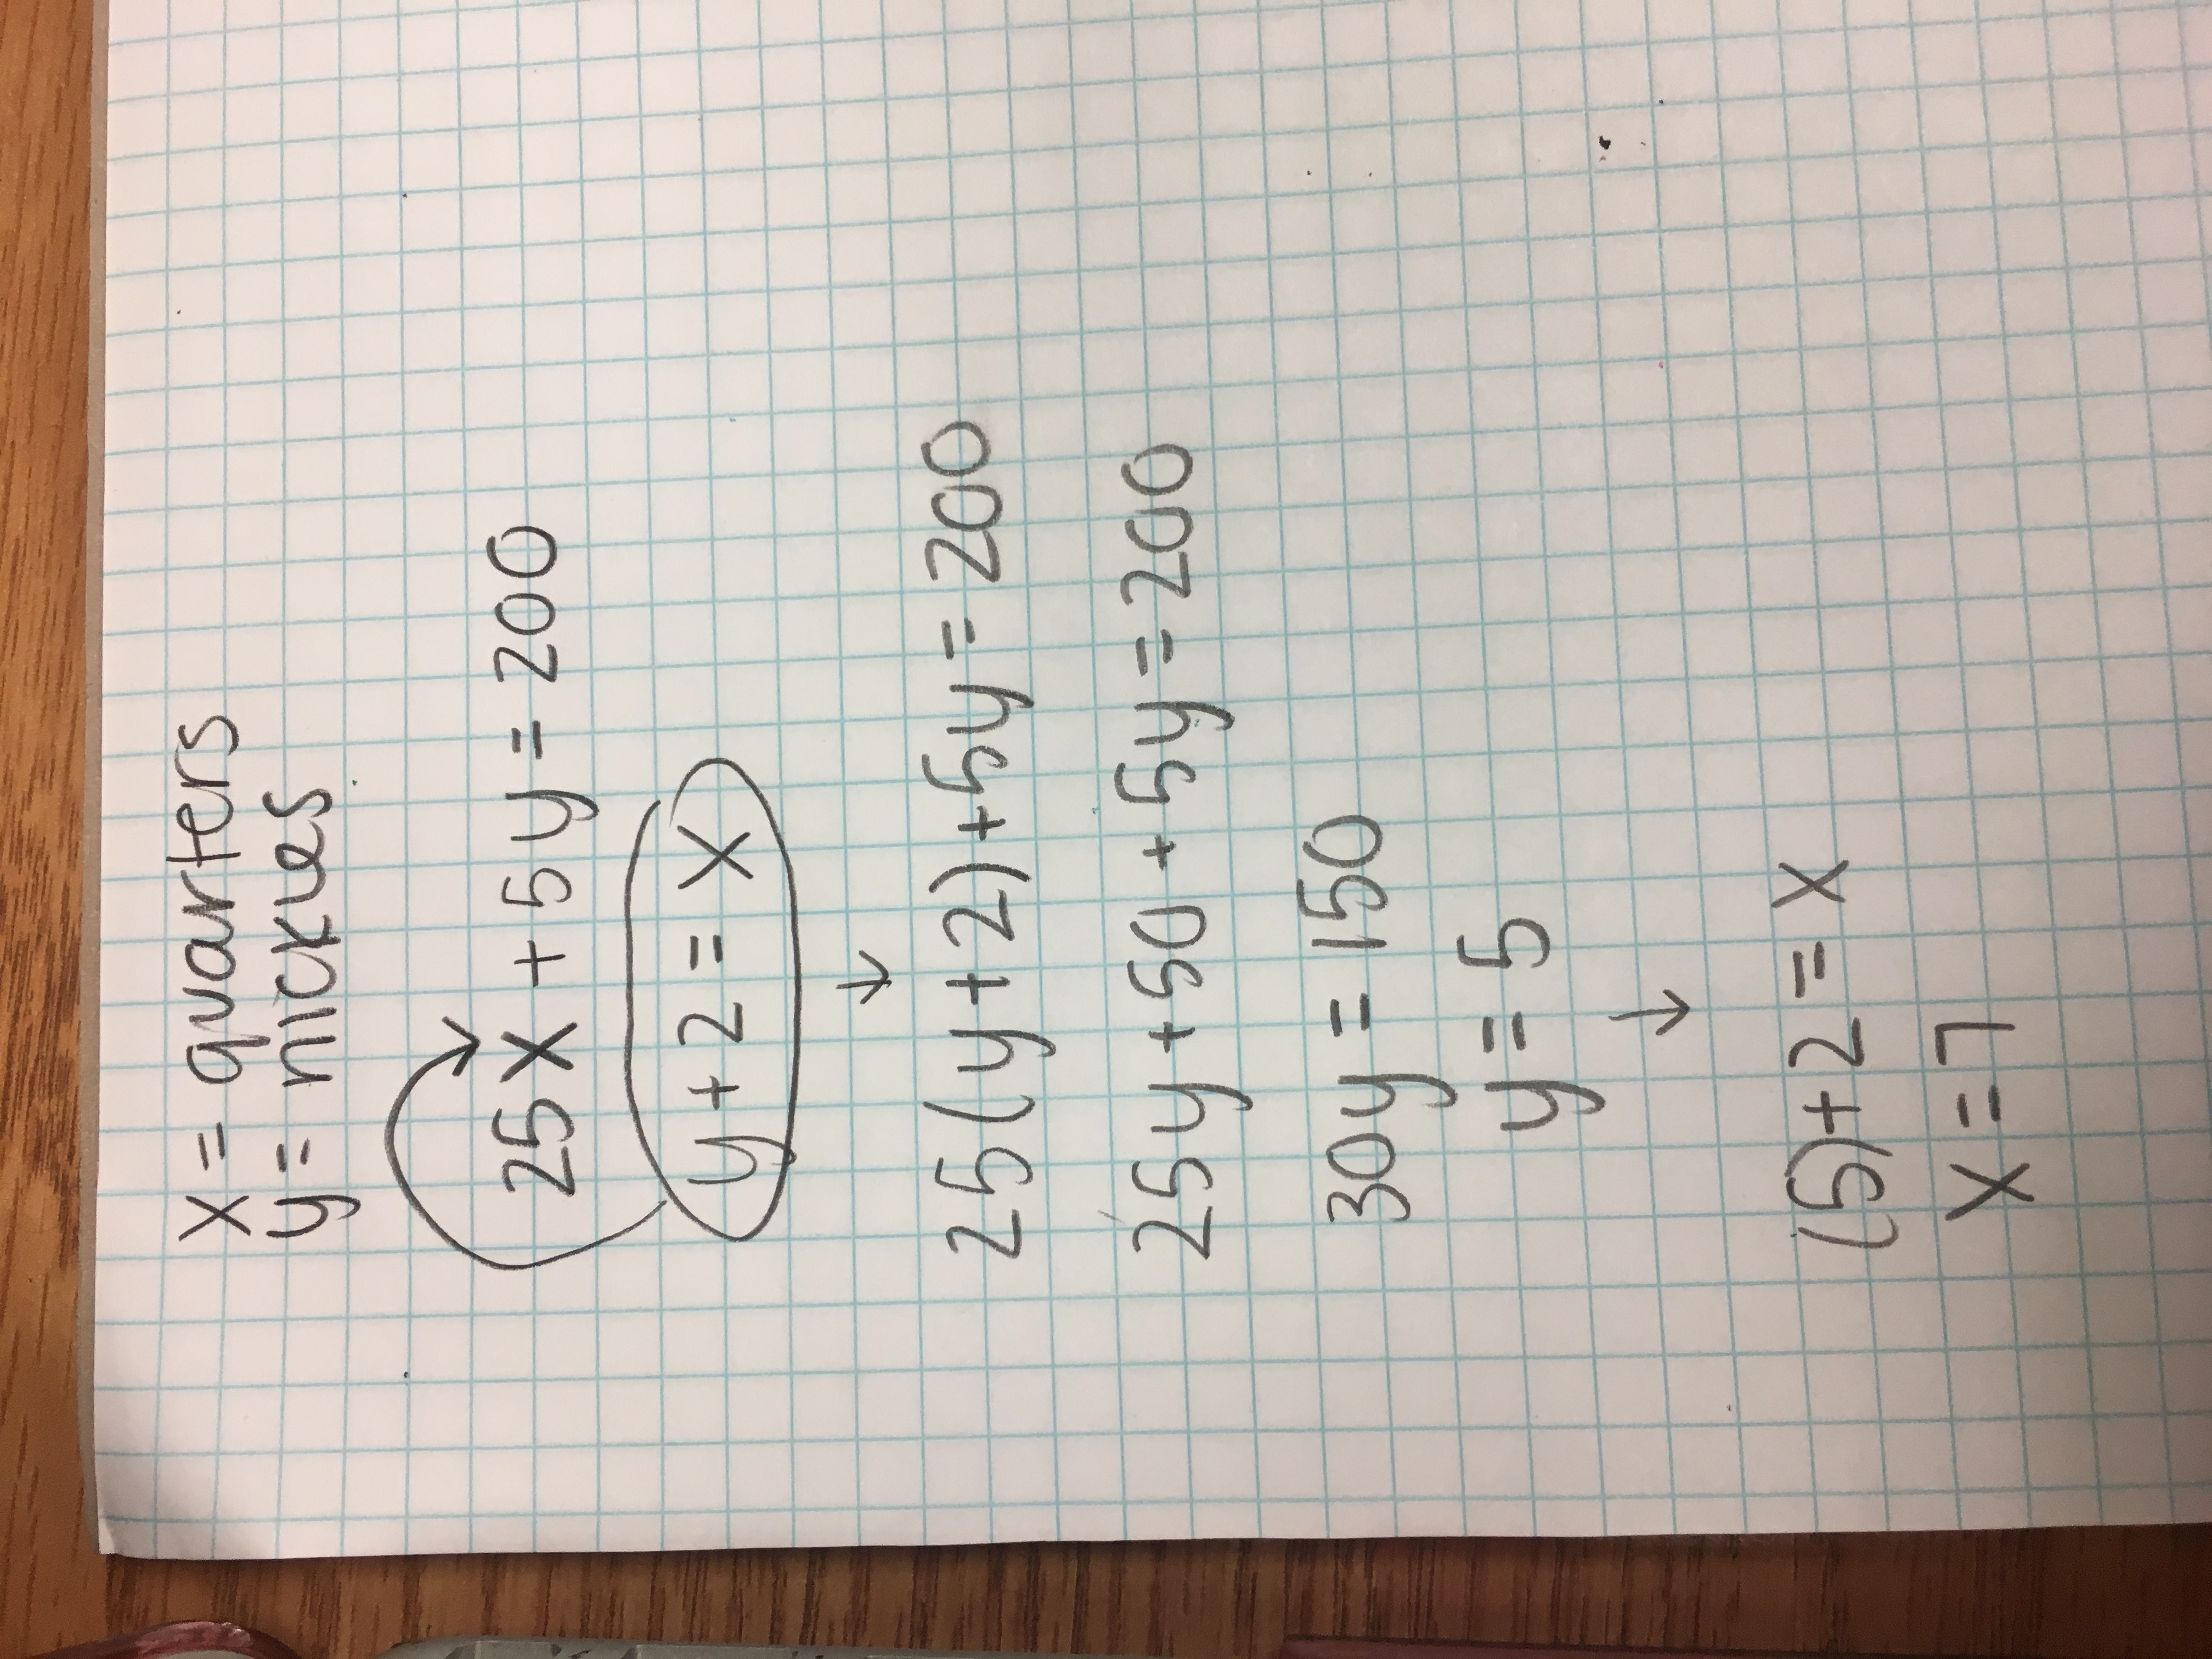 x = quarters
y = nickles
25x + 5y = 200
y + 2 = x
↓
25(y+2)+5y = 200
25y+50+5y=200
30y = 150
y = 5
↓
(5)+2 = x
x = 7